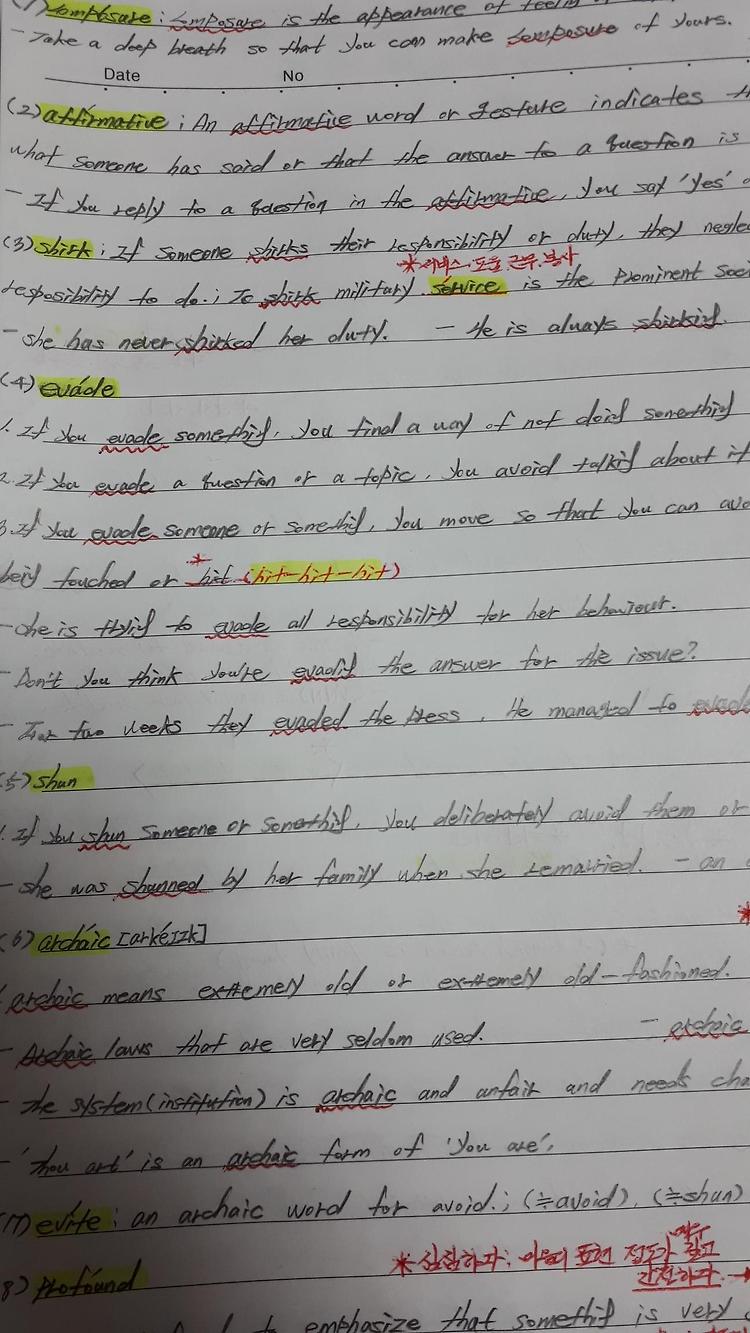 (1) composure : composure is the appearance of feelin
- Take a deep breath so that you can make composure of yours.
Date No
(2) affirmative ; An affirmative word or gesture indicates th
what someone has said or that the answer to a question is
- If you reply to a question in the affirmative, you say 'yes'
(3) shirk ; If someone shirks their responsibility or duty, they negle
*서비스.도움.근무.봉사
resposibility to do.; To shirk military service is the prominent soci
- she has never shirked her duty. - He is always shirking.
(4) evade
1. If you evade something, you find a way of not doing something
2. If you evade a question or a topic, you avoid talking about it
3. If you evade someone or something, you move so that you can avo
being touched or *hit (hit-hit-hit)
- she is trying to evade all responsibility for her behaviour.
- Don't you think you're evading the answer for the issue?
- For two weeks they evaded the press. He managed to evade
(5) shun
1. If you shun someone or something, you deliberately avoid them or
- she was shunned by her family when she remarried. - an
(6) archaic [arkéɪzk]
archaic means extremely old or extremely old-fashioned.
- Archaic laws that are very seldom used. - archaic
- the system(institution) is archaic and unfair and needs cha
- 'thou art' is an archaic form of 'you are'.
(7) evite ; an archaic word for avoid.; (≒avoid), (≒shun)
매우
*심심하다: 마음의 표현 정도가 깊고
간절하다.→
8) profound
to emphasize that something is very